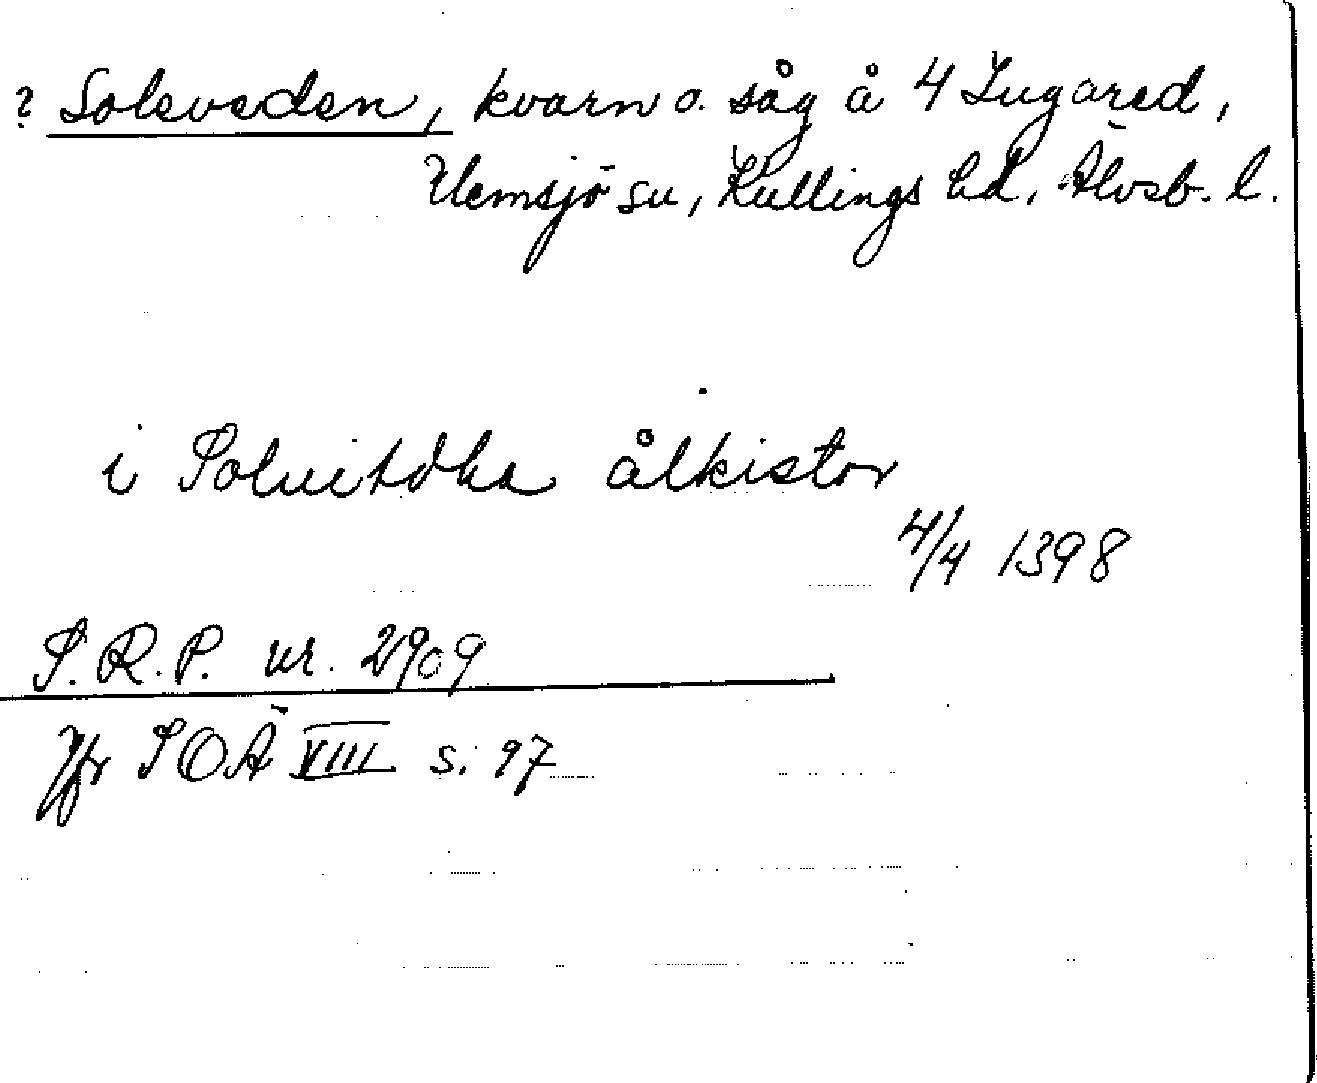 ? Solveden, kvarn o. såg å 4 Ingared,
Hemsjö sn, Kullings hd, Älvsb. l.
i Soluitdha ålkistor
4/4 1398
S.R.P. nr. 2909
Jfr SOÄ VIII s. 97